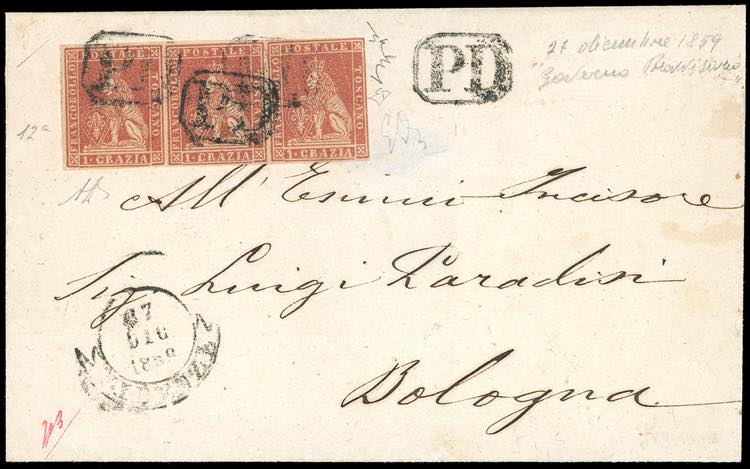 FRANCOBOLLO POSTALE TOSCANO
1·CRAZIA
FRANCOBOLLO POSTALE TOSCANO
1·CRAZIA
FRANCOBOLLO POSTALE TOSCANO
1·CRAZIA
PD
PD
PD
"27 dicembre 1859
Governo Provvisorio"
12a
All' Esimio Incisore
Sig. Luigi Paradisi
Bologna
27
DIC
1859
FIRENZE